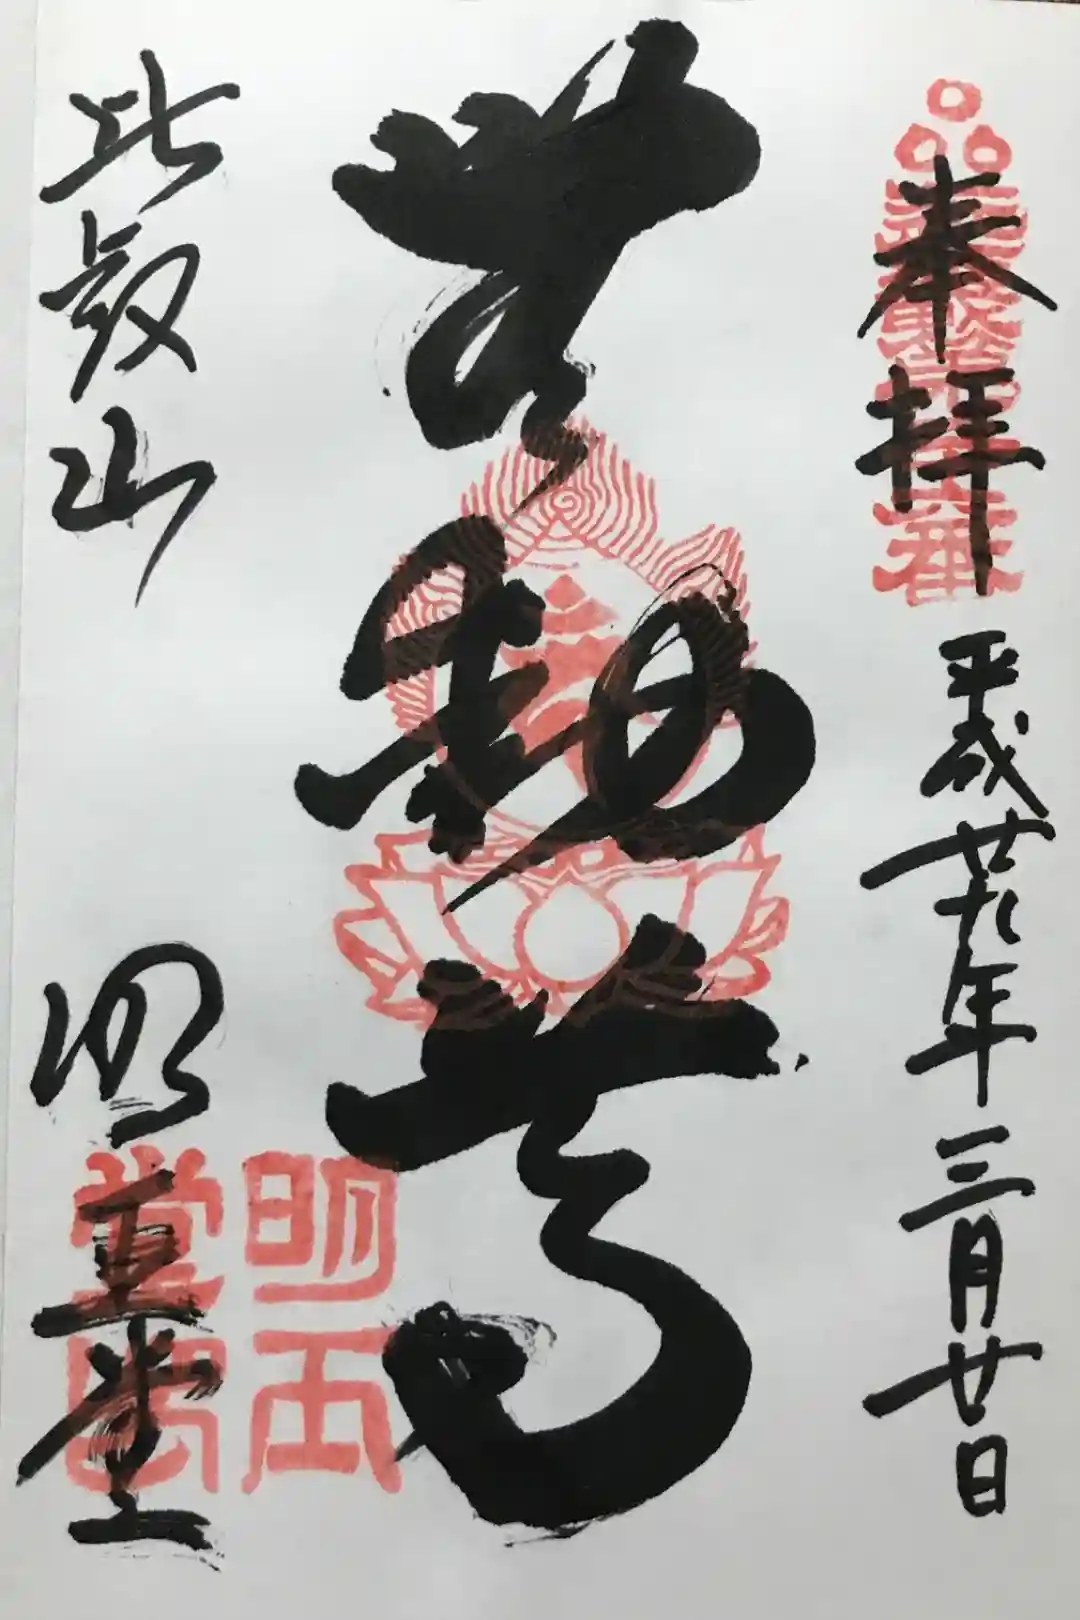 奉拝 平成廿九年三月廿日
無動尊
比叡山 明王堂
明王
堂印